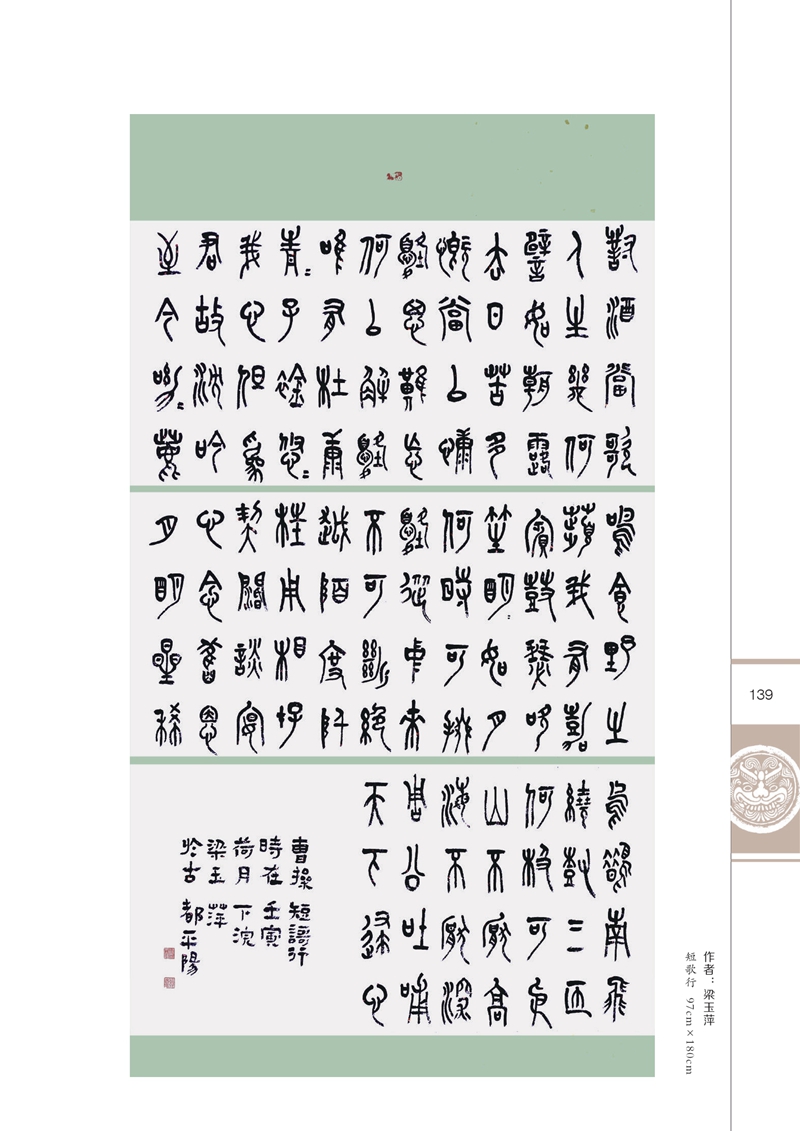 對酒當歌
人生幾何
譬如朝露
去日苦多
慨當以慷
憂思難忘
何以解憂
唯有杜康
青=子衿悠=
我心但為
君故沈吟
至今呦=鹿
鳴食野之
苹我有嘉
賓鼓瑟吹
笙明=如月
何時可掇
憂從中來
不可斷絕
越陌度阡
枉用相存
契闊談宴
心念舊恩
月明星稀
烏鵲南飛
繞樹三匝
何枝可依
山不厭高
海不厭深
周公吐哺
天下歸心
曹操短謌行
時在壬寅
荷月下浣
梁玉萍
於古都平陽
139
作者：梁玉萍
短歌行 97cm×180cm